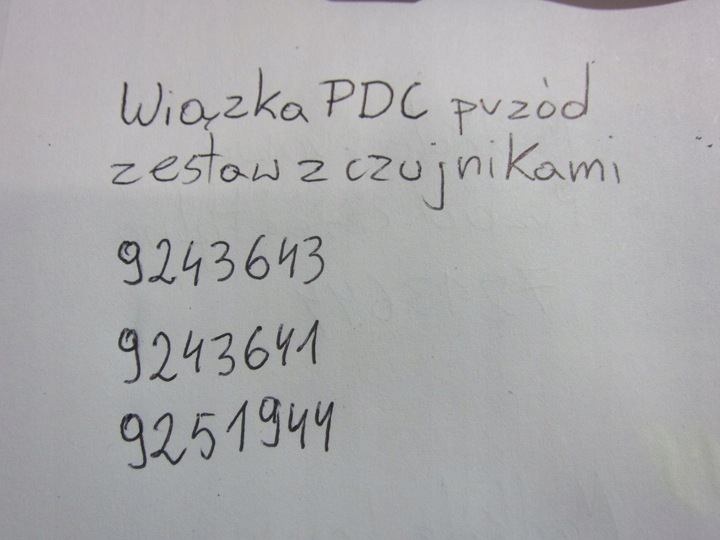 Wiązka PDC przód
zestaw z czujnikami
9243643
9243641
9251944